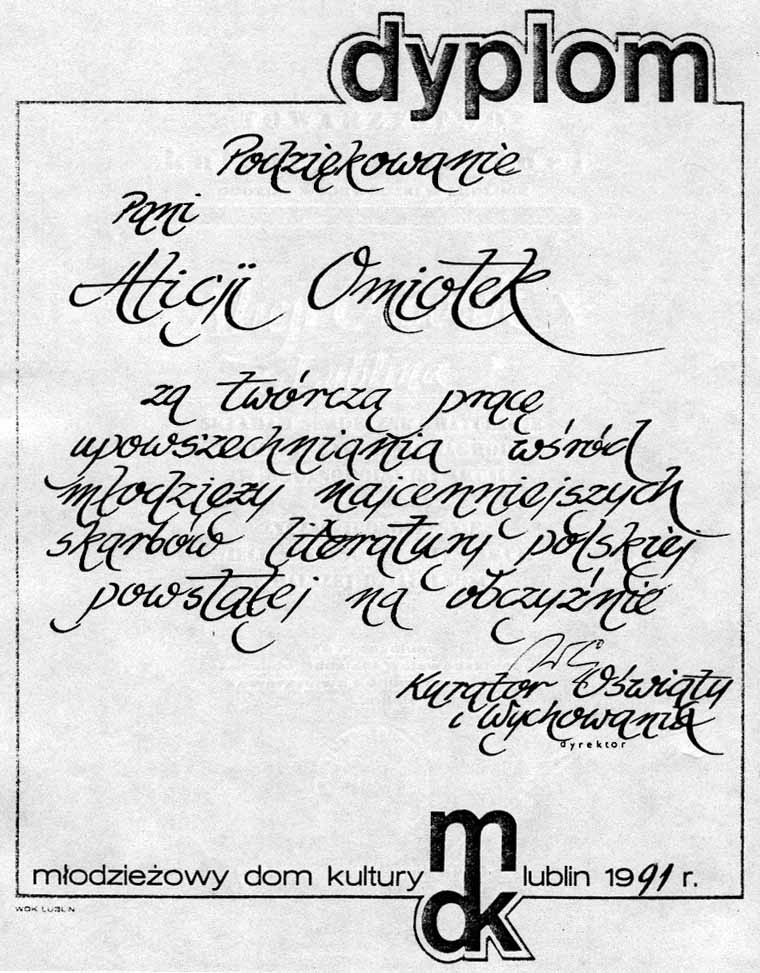 dyplom
Podziękowanie
Pani
Alicji Omiotek
za twórczą pracę
upowszechniania wśród
młodzieży najcenniejszych
skarbów literatury polskiej
powstałej na obczyźnie
Kurator Oświaty
i Wychowania
dyrektor
młodzieżowy dom kultury mdk lublin 1991 r.
WDK LUBLIN